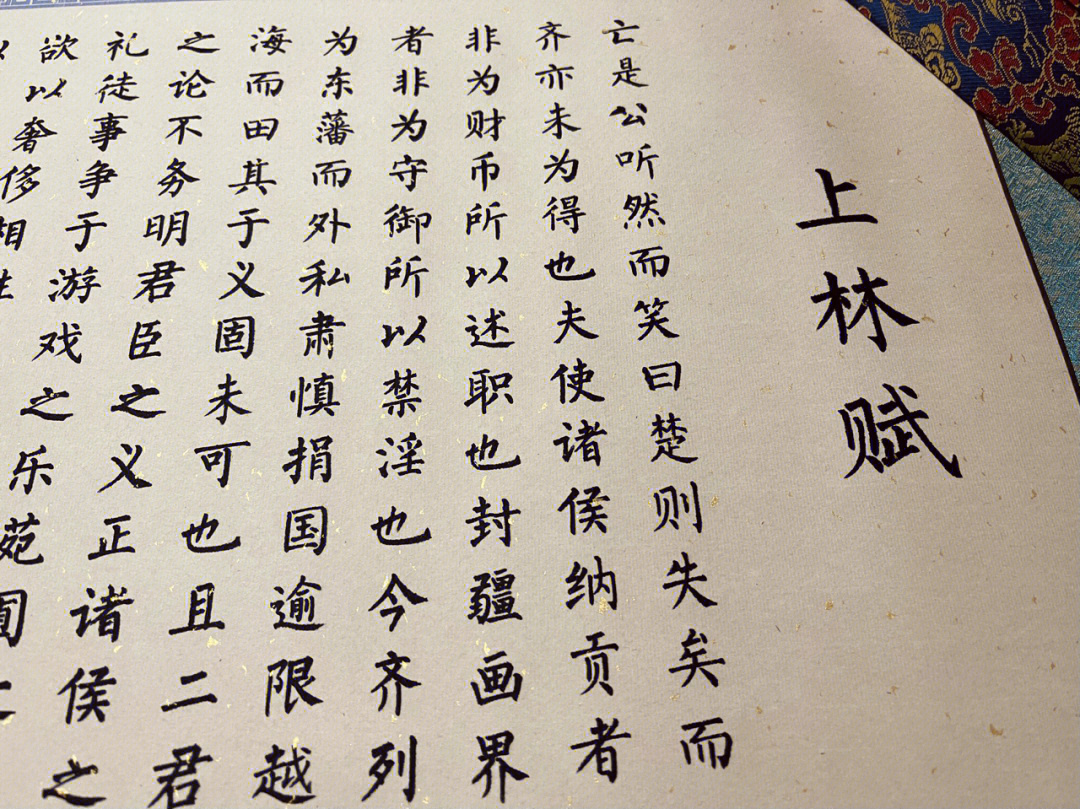 上林赋
亡是公听然而笑曰楚则失矣而
齐亦未为得也夫使诸侯纳贡者
非为财币所以述职也封疆画界
者非为守御所以禁淫也今齐列
为东藩而外私肃慎捐国逾限越
海而田其于义固未可也且二君
之论不务明君臣之义正诸侯之
礼徒事争于游戏之乐苑
欲以奢侈相